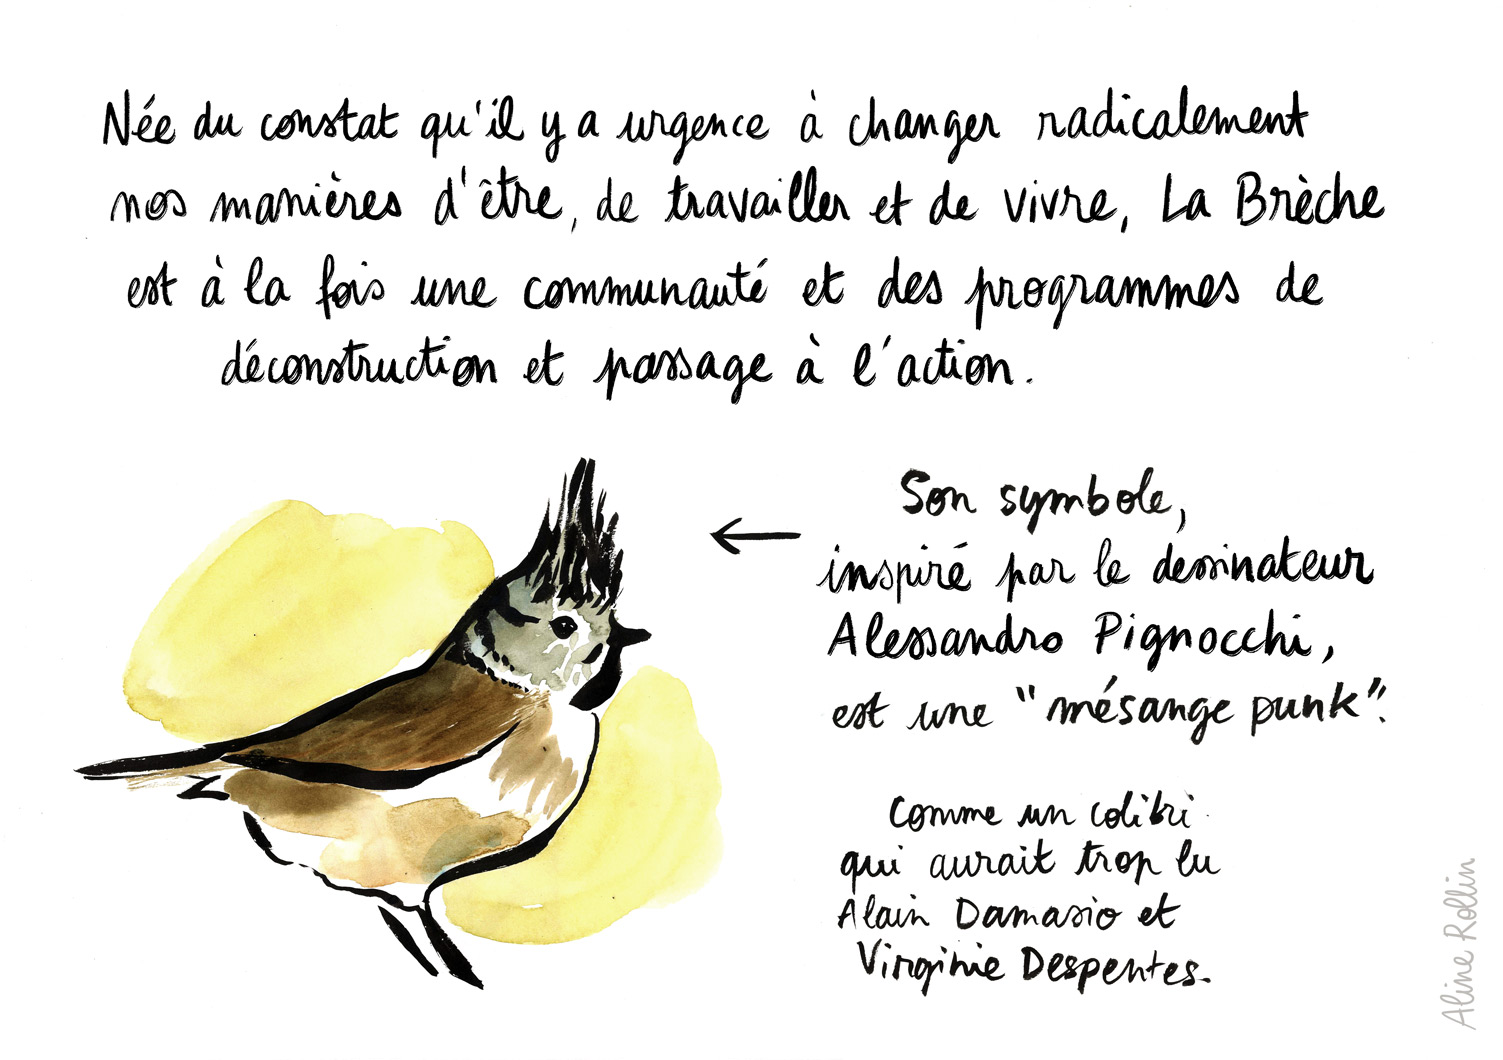 Née du constat qu'il y a urgence à changer radicalement
nos manières d'être, de travailler et de vivre, La Brèche
est à la fois une communauté et des programmes de
déconstruction et passage à l'action.
Son symbole,
inspiré par le dessinateur
Alessandro Pignocchi,
est une "mésange punk".
Comme un colibri
qui aurait trop lu
Alain Damasio et
Virginie Despentes.
Aline Rollin